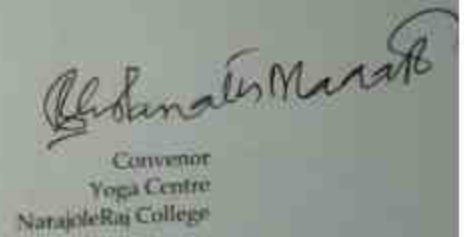 Convenor
Yoga Centre
NarajoleRaj College